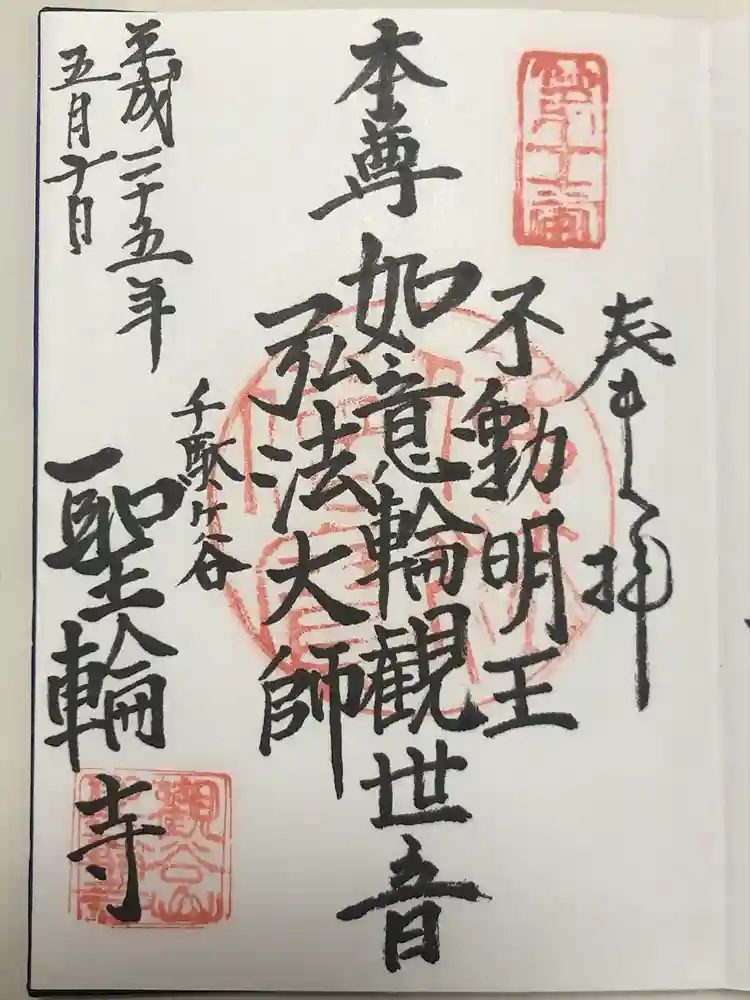 奉拝
不動明王
本尊 如意輪観世音
弘法大師
千駄ヶ谷
聖輪寺
平成二十五年
五月十日
觀谷山
聖輪寺